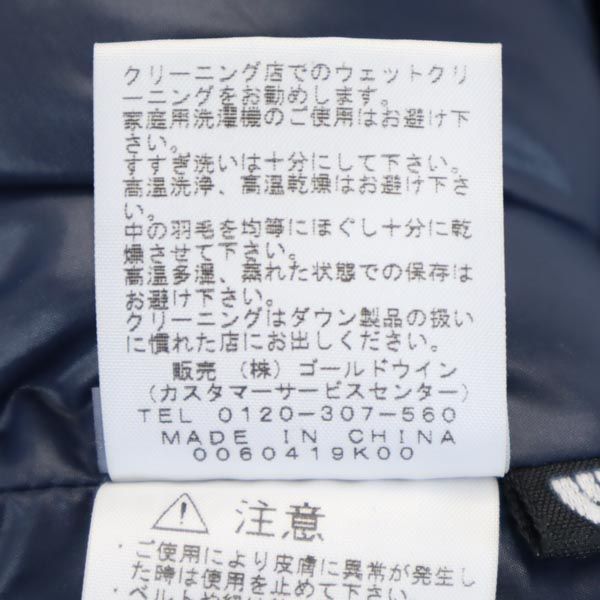 クリーニング店でのウェットクリ
ーニングをお勧めします。
家庭用洗濯機のご使用はお避け下
さい。
すすぎ洗いは十分にして下さい。
高温洗浄、高温乾燥はお避け下さ
い。
中の羽毛を均等にほぐし十分に乾
燥させて下さい。
高温多湿、蒸れた状態での保存は
お避け下さい。
クリーニングはダウン製品の扱い
に慣れた店にお出しください。
販売 (株) ゴールドウイン
(カスタマーサービスセンター)
TEL 0120-307-560
MADE IN CHINA
0060419K00
注意
・ご使用により皮膚に異常が発生し
た時は使用を止めて下さい。
・ベルト